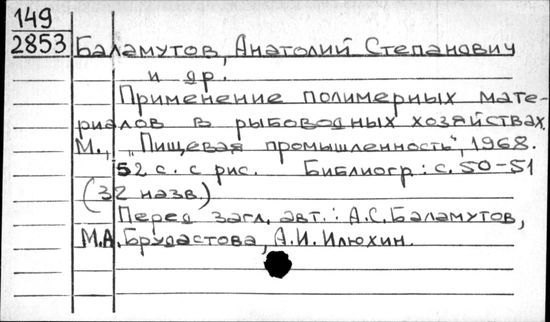 149
2853
Баламутов, Анатолий Степанович
и др.
Применение полимерных мате-
риалов в рыбоводных хозяйствах.
М., "Пищевая промышленность", 1968.
52 с. с рис. Библиогр: с. 50-51
(32 назв.)
Перед загл. авт.: А.С. Баламутов,
М.А. Брудастова, А.И. Илюхин.